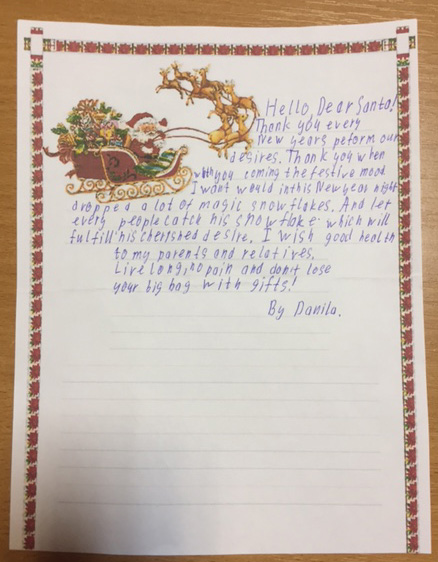 Hello, Dear Santa!
Thank you every
New years peform our
desires. Thank you when
with you coming the festive mood.
I want would in this New year night
dropped a lot of magic snowflakes. And let
every people catch his snowflake which will
fulfill his cherished desire. I wish good health
to my parents and relatives.
Live long, no pain and don't lose
your big bag with gifts!
By Danila.